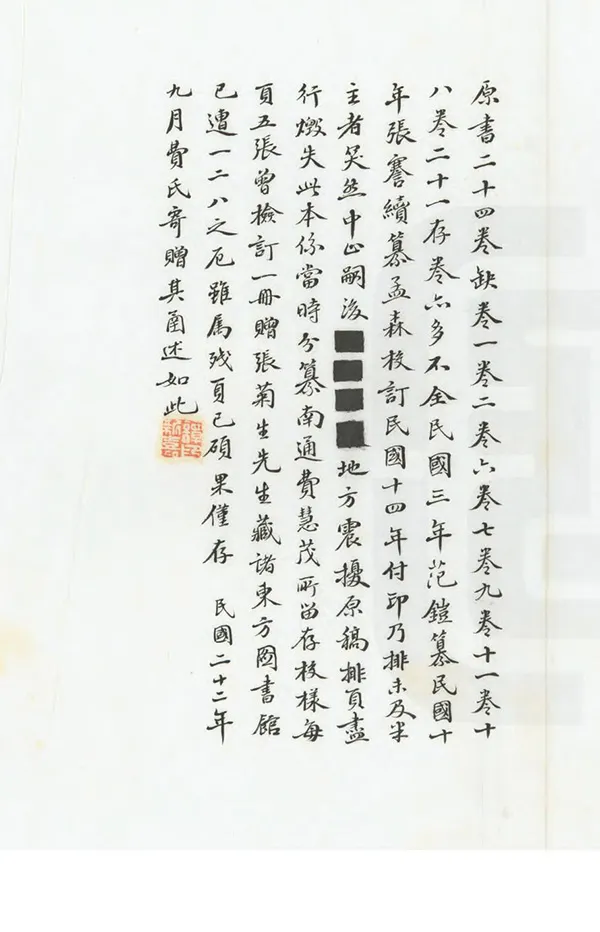 原書二十四卷缺卷一卷二卷六卷七卷九卷十一卷十
八卷二十一存卷亦多不全民國三年范鎧纂民國十
年張謇續纂孟森校訂民國十四年付印乃排未及半
主者突然中止嗣後■■■■地方震擾原稿排頁盡
行燬失此本係當時分纂南通費慧茂所留存校樣每
頁五張曾檢訂一冊贈張菊生先生藏諸東方圖書館
已遭一二八之厄雖屬殘頁已碩果僅存 民國二十二年
九月費氏寄贈其函述如此